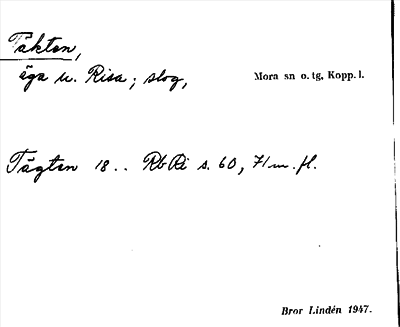 Täkten,
äga u. Risa; slog, Mora sn o. tg, Kopp. l.
Tägten 18 . . Rb Ri s. 60, 71 m. fl.
Bror Lindén 1947.